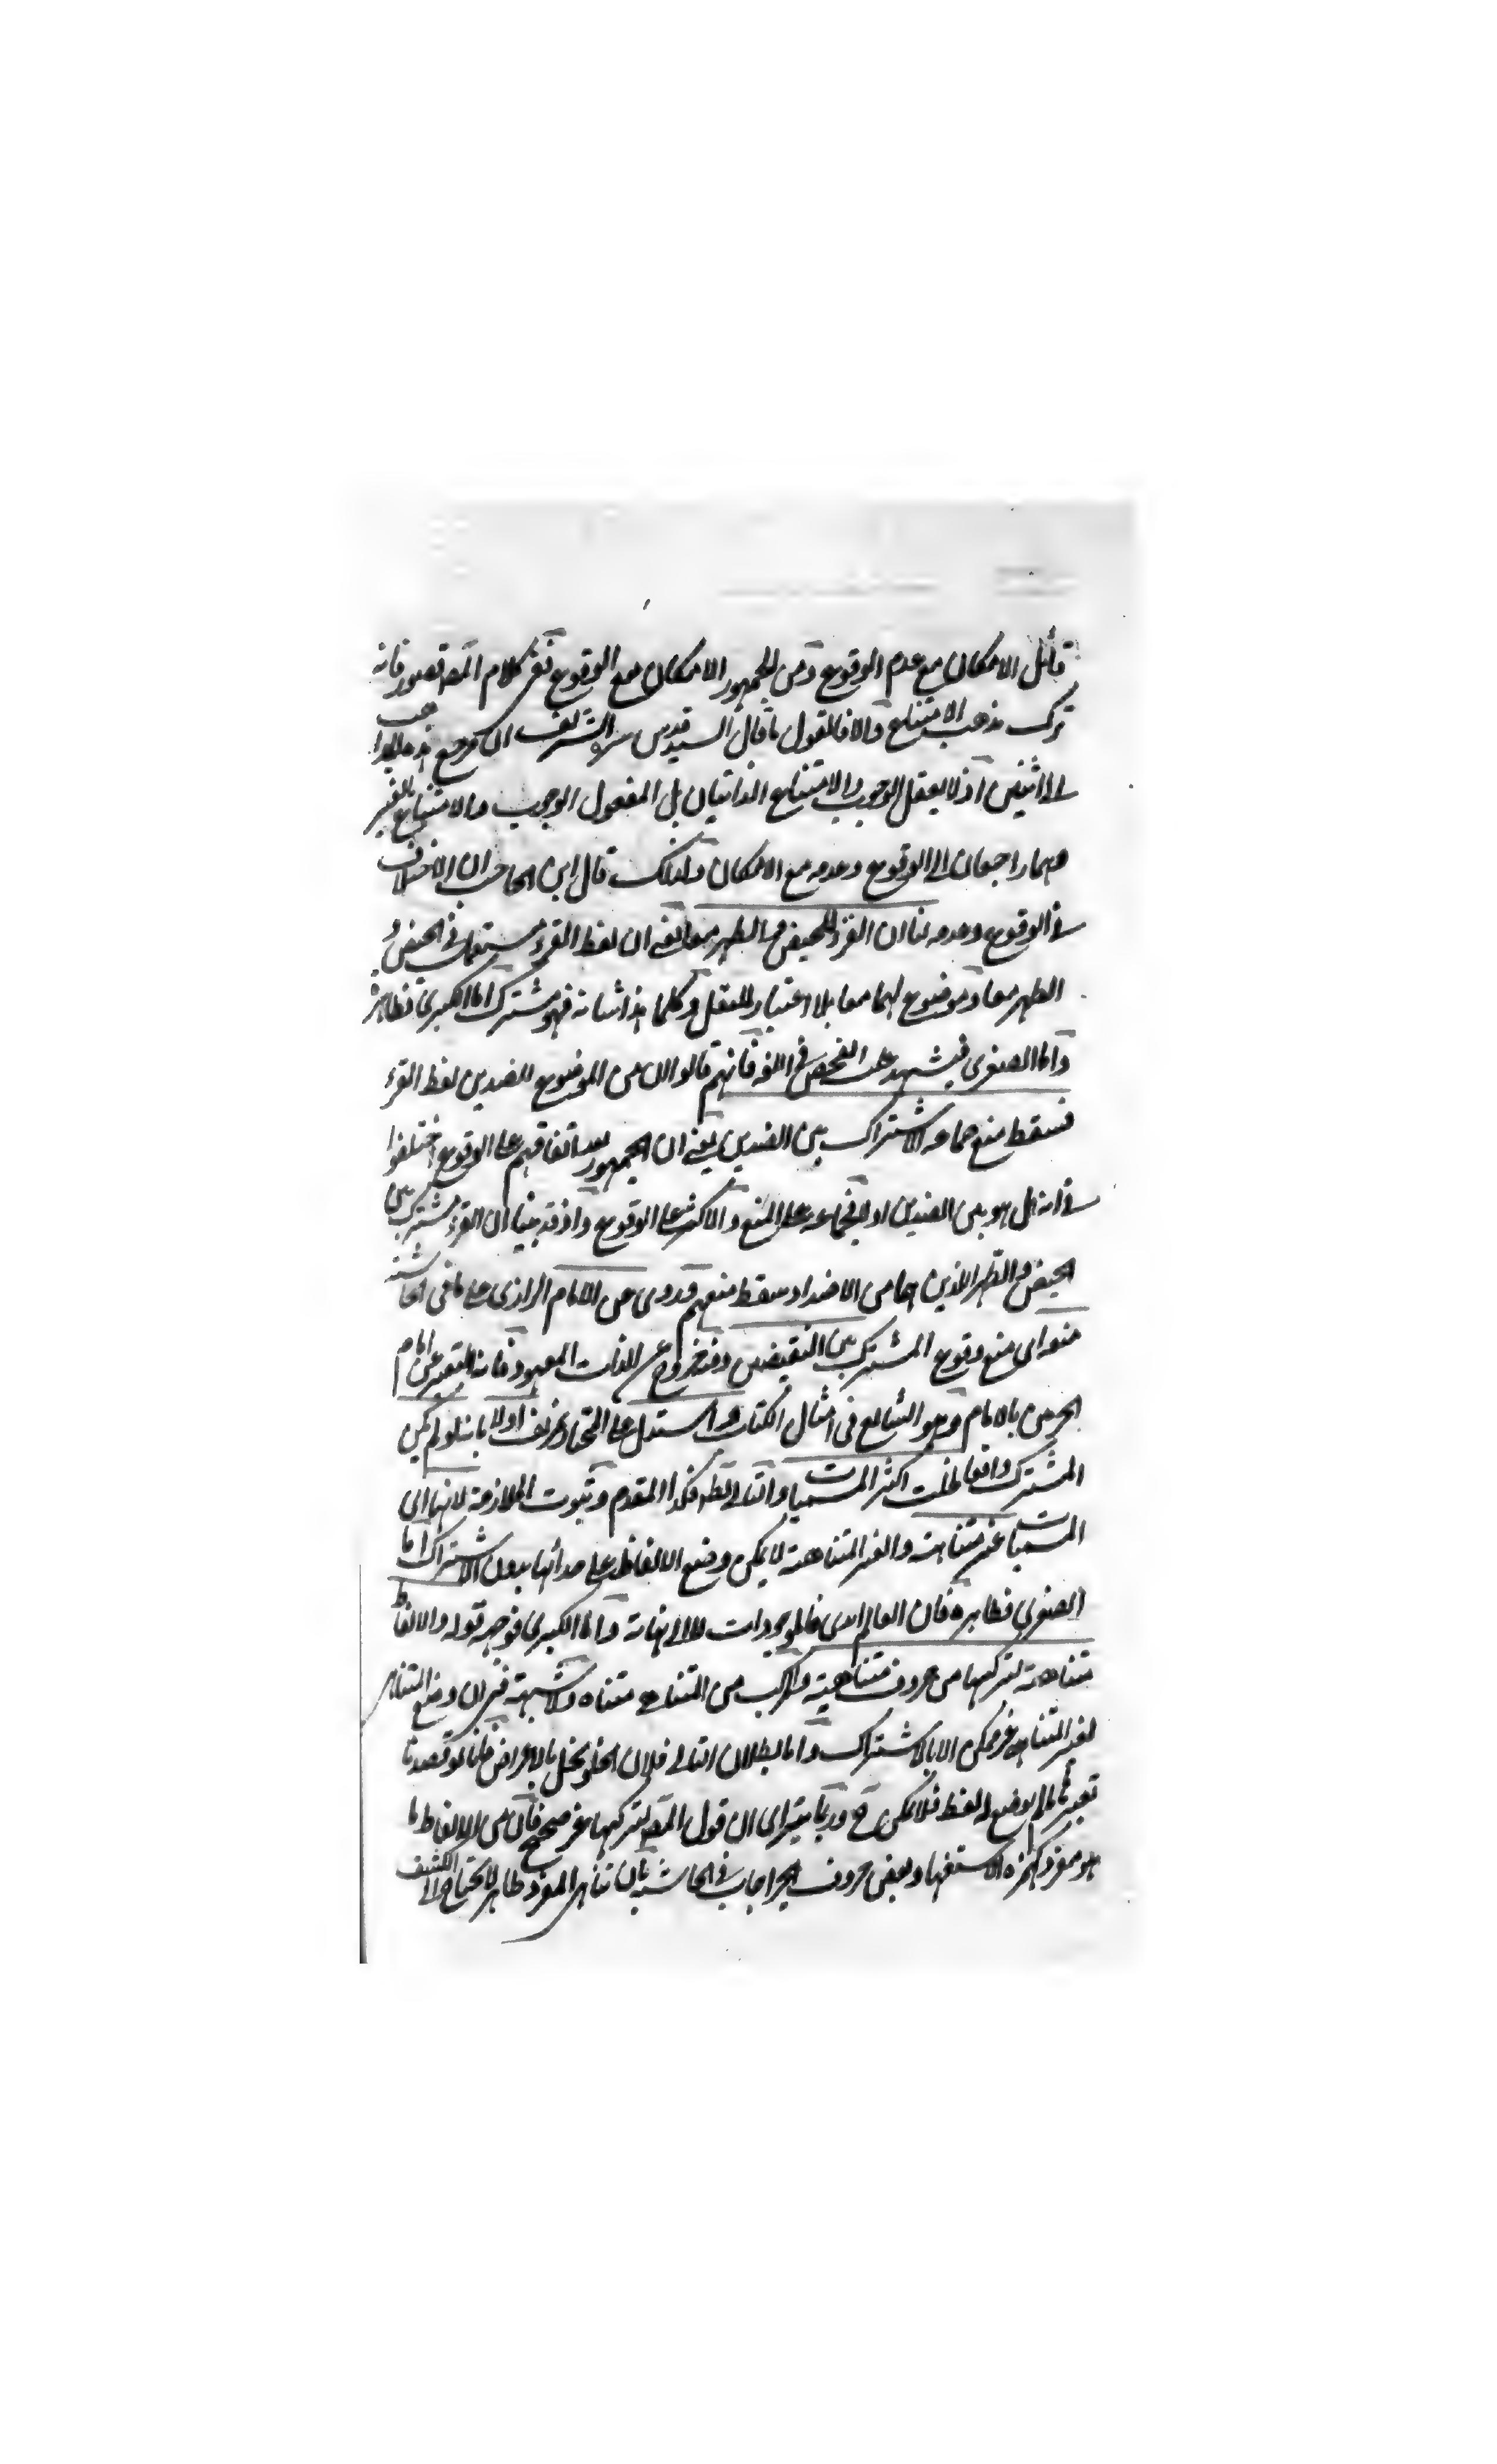 قائل الامكان مع عدم الوقوع ومن الجمهور الامكان مع الوقوع ففى كلام المص قصور فانه
ترك مذهب الامتناع والا فالقول ما قال السيد قدس سره الشريف ان مرجع هذه المذاهب
الى اثنين اذ لا يعقل الوجوب والامتناع الذاتيان بل المعقول الوجوب والامتناع بالغير
وهما راجعان الى الوقوع وعدمه مع الامكان ولذلك قال ابن الحاجب ان الاختلاف
فى الوقوع وعدمه لنا ان القرء للحيض والطهر معا يعنى ان لفظ القرء مستعمل فى الحيض و
الطهر معا وموضوع لهما معا بلا اعتبار النقل وكلما هذا شانه فهو مشترك اما الكبرى فظاهرة
واما الصغرى فيشهد عليه الفحص فى اللغة فانهم قالوا ان من الموضوع للضدين لفظ القرء
فسقط منع جماعة الاشتراك بين الضدين يعنى ان الجمهور بعد اتفاقهم على الوقوع اختلفوا
فى انه هل هو بين الضدين او لا فجماعة على المنع والاكثر على الوقوع واذ قد بينا ان القرء مشترك بين
الحيض والطهر الذين هما من الاضداد سقط منعهم وروى عن الامام الرازى على ما فى الحاشية
منعه اى منع وقوع المشترك بين النقيضين وفيه خروج عن المعهود فانه التعبير عن امام
الحرمين بالامام وهو الشايع فى امثال الكتاب واستدل على المختار بزيف اولا بانه لو لم يكن
المشترك واقعا لخلت اكثر المسميات والتالى بط فكذا المقدم وثبوت الملازمة لانها اى
المسميات غير متناهية والغير المتناهية لا يمكن وضع الالفاظ على حدائها بدون الاشتراك اما
الصغرى فظاهرة فان العالم ابدى فالموجودات لا الى نهاية واما الكبرى فوجهه قوله والالفاظ
متناهية لتركبها من حروف متناهية والمركب من المتناهى متناه ولا شبهة فى ان وضع المتناهى
لغير المتناهى غير ممكن الا بالاشتراك واما بطلان التالى فلان الخلو يخل بالاغراض فانا لو قصدنا
تعبير ما لم يوضع له لفظ فلا يمكن ح وربما يترااى ان قول المص لتركبها غير صحيح فان من الالفاظ ما
هو مفرد كهمزة الاستفهام وبعض حروف الجر اجاب فى الحاشية بان تناهى المفرد ظاهر لا يحتاج الى الكشف